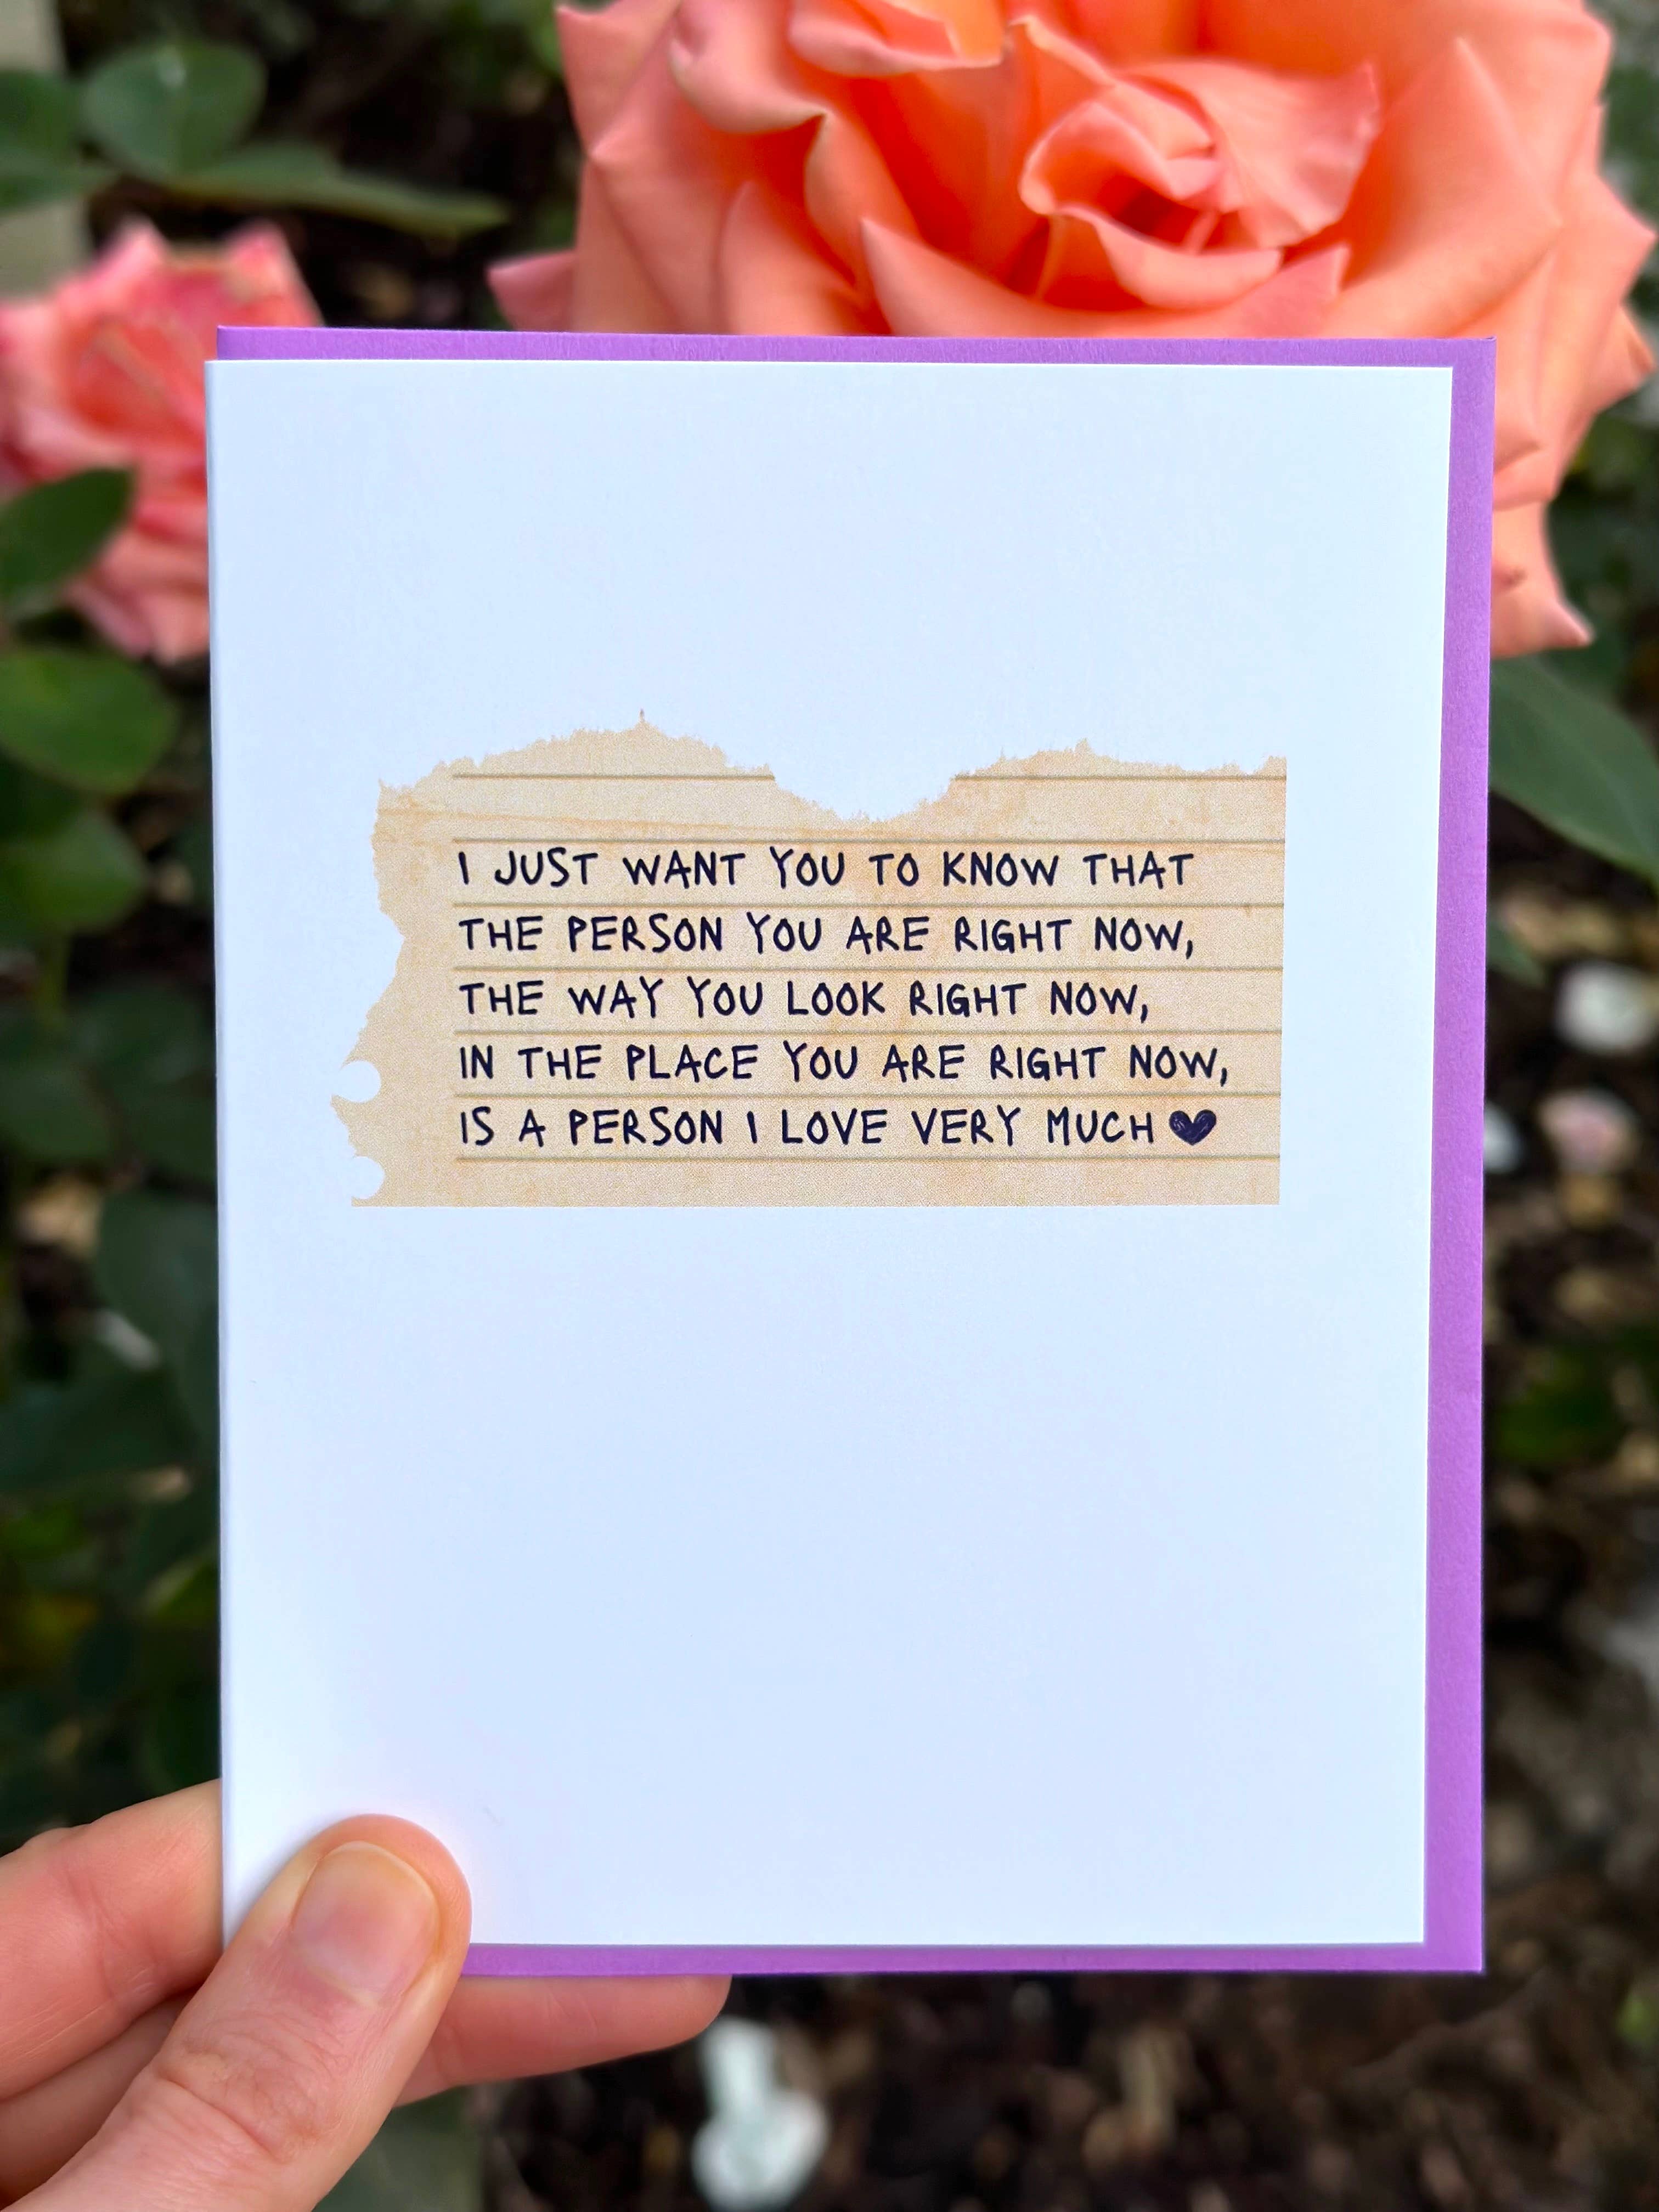 I JUST WANT YOU TO KNOW THAT
THE PERSON YOU ARE RIGHT NOW,
THE WAY YOU LOOK RIGHT NOW,
IN THE PLACE YOU ARE RIGHT NOW,
IS A PERSON I LOVE VERY MUCH ♥